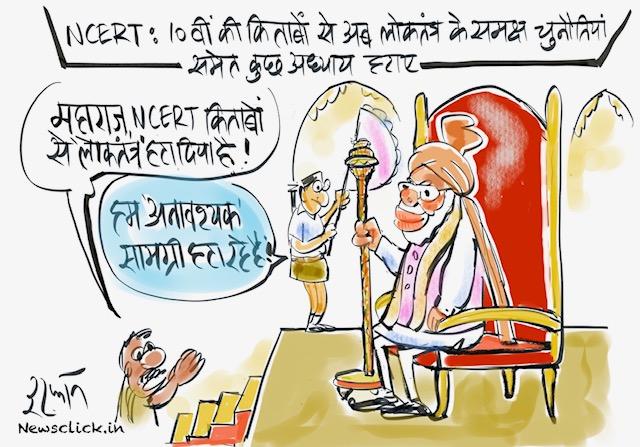 NCERT: 10वीं की किताबों से अब लोकतंत्र के समक्ष चुनौतियां
समेत कुछ अध्याय हटाए
महाराज, NCERT किताबों
से 'लोकतंत्र' हटा दिया है!
हम अनावश्यक
सामग्री हटा रहे हैं!
Newsclick.in